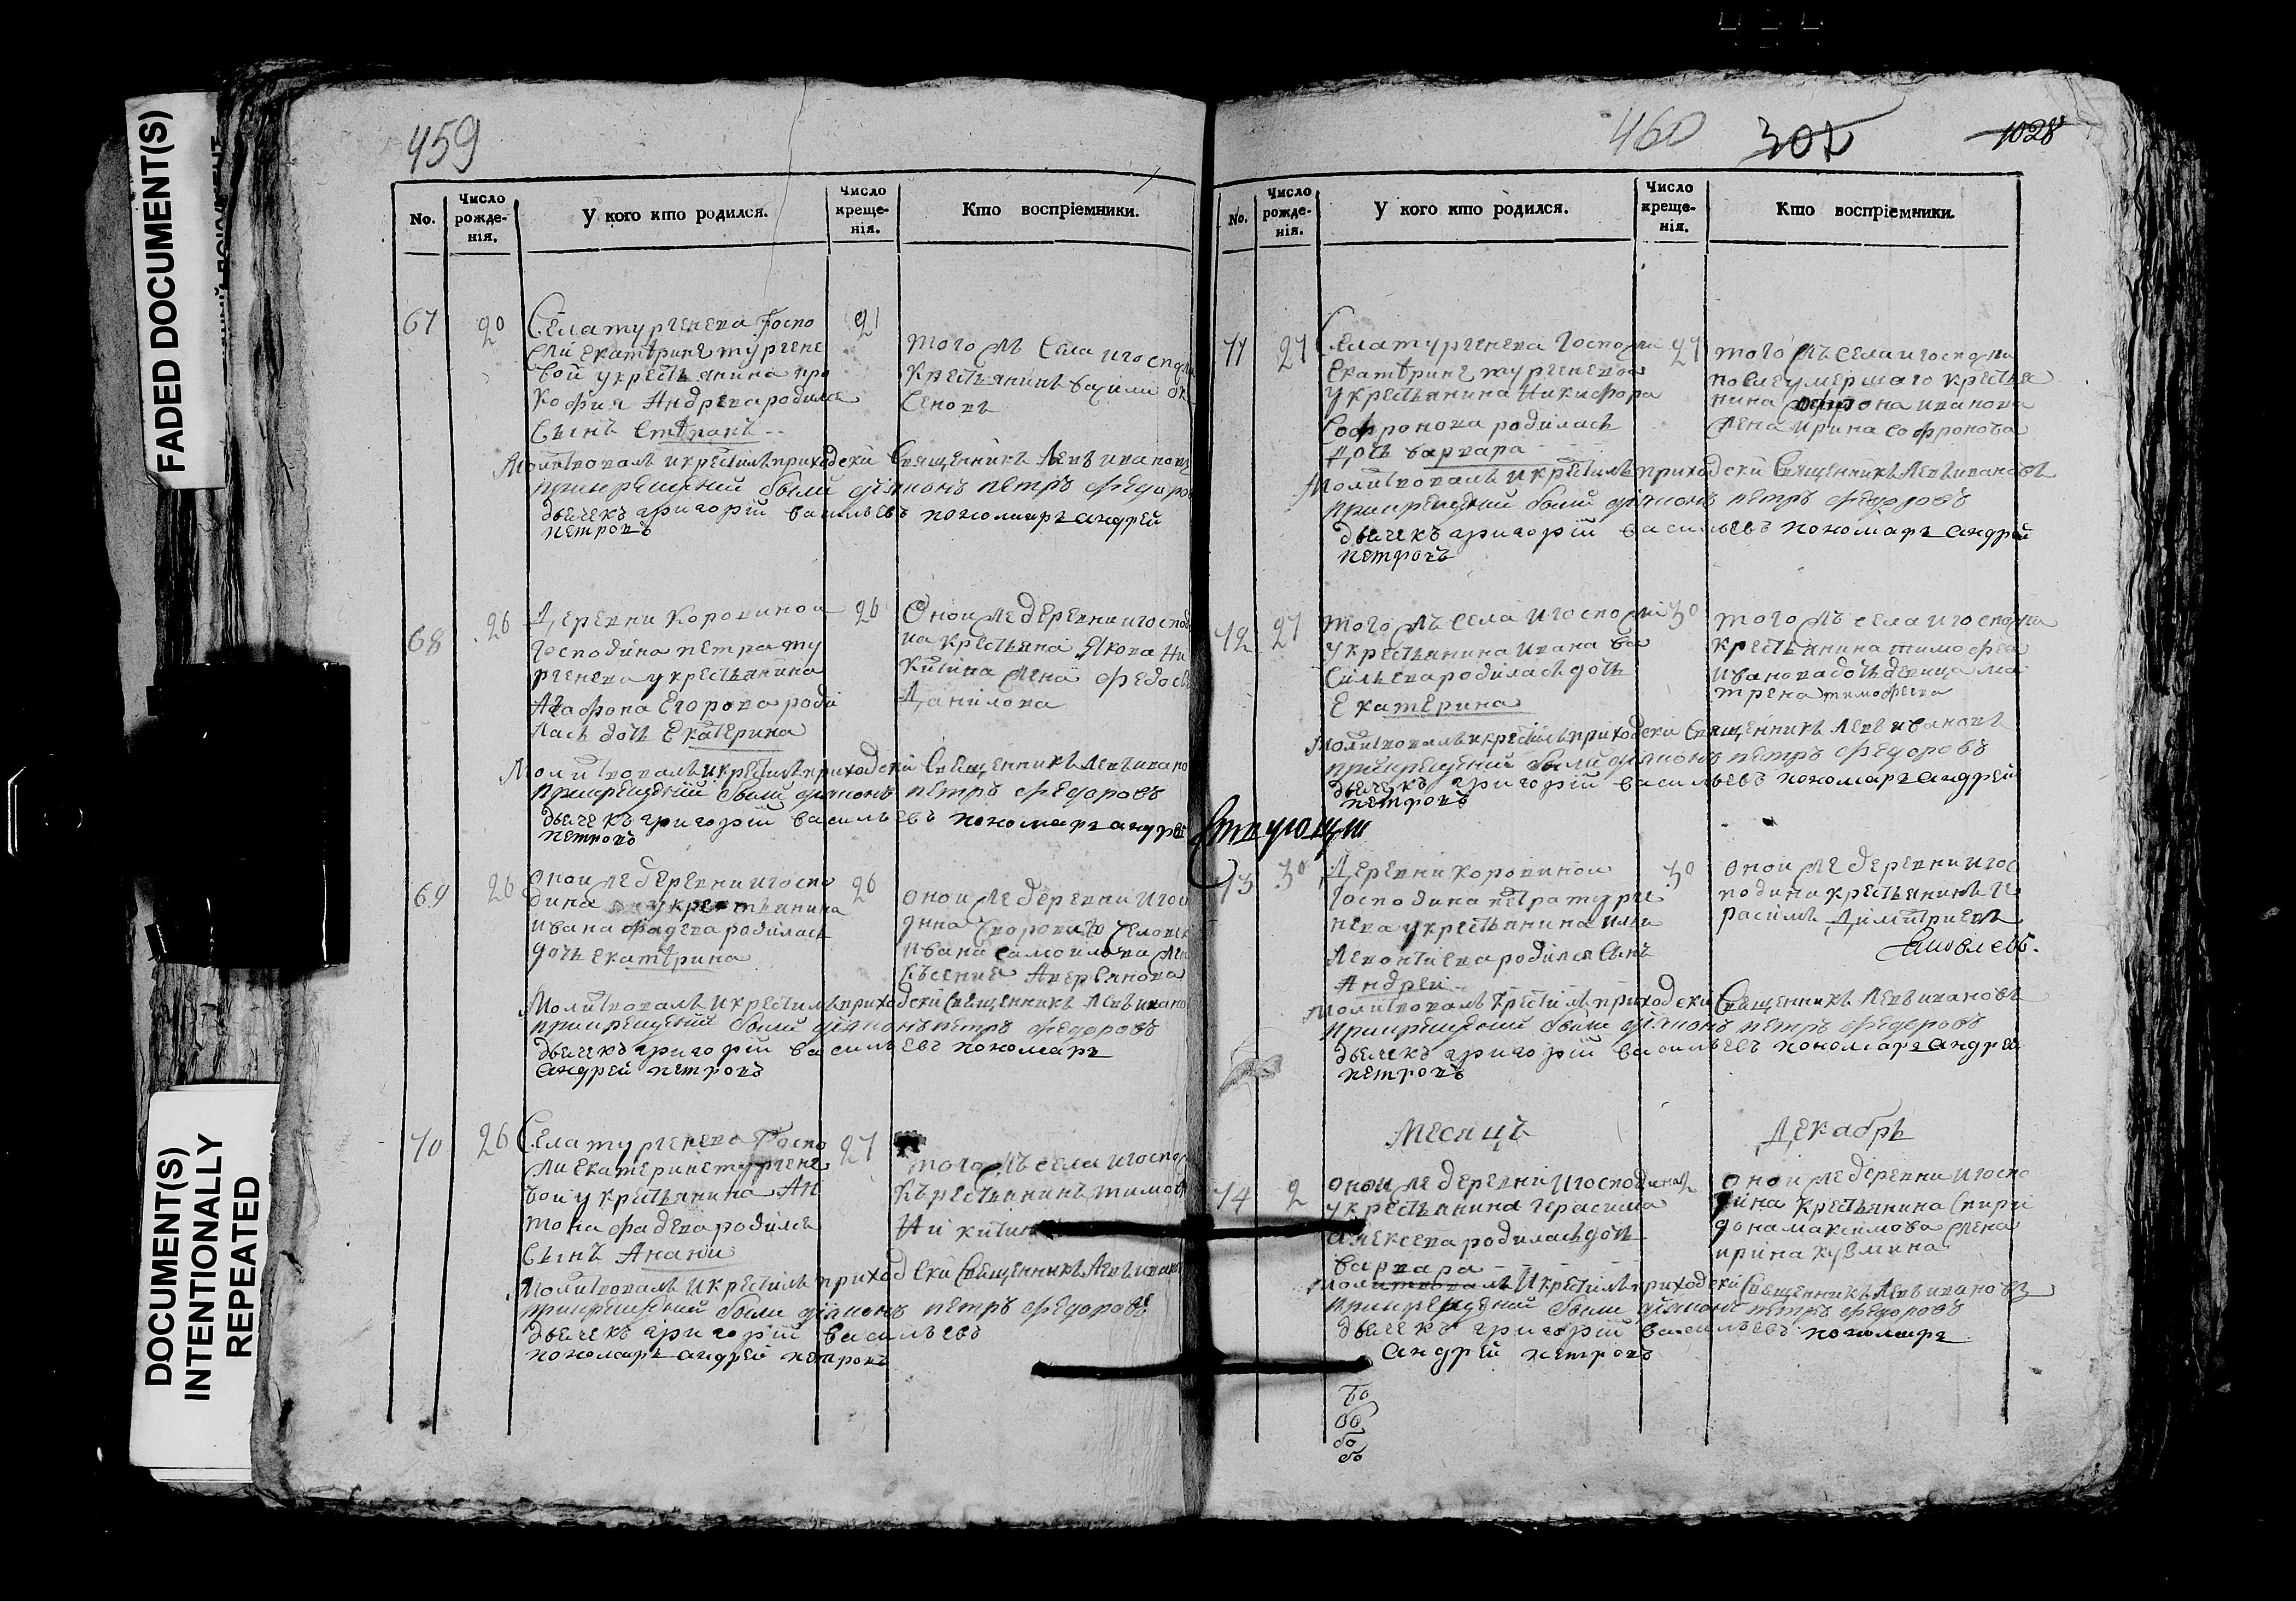 FADED DOCUMENT(S)
DOCUMENT(S)
INTENTIONALLY
REPEATED
459
No.
Число рожде-нія.
У кого кто родился.
Число креще-нія.
Кто воспріемники.
67
20
Села тургенева Госпо
жи Екатѣрине тургене
вой у крестьянина про
кофия Андрева родился
Сынъ Стѣфанъ
21
того жъ Села и госпожи
крестьянинъ василй
Молитвовалъ и крестилъ приходски Священникъ Левъ иванов
при крещений были діяконъ петръ федоров
дьячекъ григорій васильевъ пономарь андрей
петровъ
68
26
Деревни Коровиной
Господина петра ту
ргенева у крестьянина
Агафона Егорова роди
лась дочь Екатерина
26
Оной же деревни и господи
на крестьяна Якова Ни
китина жена федосья
Данилова
Молитвовалъ и крестилъ приходски Священникъ Левъ ивано
при крещений были діяконъ петръ федоровъ
дьячекъ григорій васильевъ пономарь андрей
петровъ
69
26
оной же деревни и госпо
дина у крестьянина
ивана фадева родилась
дочь екатѣрина
26
оной же деревни и госп
дина Дворовато Человек
ивана самоилова жена
Ксения Аверьянова
Молитвовалъ и крестилъ приходски Священникъ Левъ иванов
при крещений были діяконъ петръ федоровъ
дьячекъ григорій васильевъ пономарь
андрей петровъ
70
26
Села тургенева Госпо
жи екатерине тургене
вой у крестьянина Ан
тона фадева родился
Сынъ Анани
27
того жъ села и госпож
Крестьянинъ тимоф
Никитин
Молитвовалъ и крестилъ приходски Священникъ Левъ иван
при крещений были діяконъ петръ федоровъ
дьячекъ григорій васильевъ
пономарь андрей петровъ
460
302
1028
No.
Число рожде-нія.
У кого кто родился.
Число креще-нія.
Кто воспріемники.
71
27
Села тургенева госпожи
Екатѣрине тургеневой
у крестьянина Никифора
Софронова родилась
дочь варвара
27
того жъ села и госпожи
после умершаго крестья
нина софрона иванова
жена ирина софронова
Молитвовалъ и крестилъ приходски Священникъ Левъ ивановъ
при крещений были діяконъ петръ федоровъ
дьячекъ григорій васильевъ пономарь андрей
петровъ
72
27
того жъ села и госпожи
у крестьянина ивана ва
сильева родилась дочь
Екатерина
30
того жъ села и госпожи
крестьянина тимофея
иванова дочь девица ма
трена тимофеева
Молитвовалъ и крестилъ приходски Священникъ Левъ ивановъ
при крещений были діяконъ петръ федоровъ
дьячекъ григорій васильевъ пономарь андрей
петровъ
73
30
Деревни коровиной
Господина петра турге
нева у крестьянина ильи
Леонтиева родился Сынъ
Андрей
30
оной же деревни и гос
подина крестьянинъ Ге
расимъ Димитриевъ
Яковлевъ.
Молитвовалъ крестилъ приходски Священникъ Левъ ивановъ
при крещений были діяконъ петръ федоровъ
дьячекъ григорій васильевъ пономарь андрей
петровъ
Месяцъ Декабрь
74
2
оной же деревни и господина
у крестьянина герасима
Алексева родилась дочь
варвара
2
оной же деревни и госпо
дина крестьянина спири
дона максимова жена
ирина кузмина
Молитвовалъ и крестилъ приходски Священникъ Левъ ивановъ
при крещений были діяконъ петръ федоровъ
дьячекъ григорій васильевъ пономарь
андрей петровъ